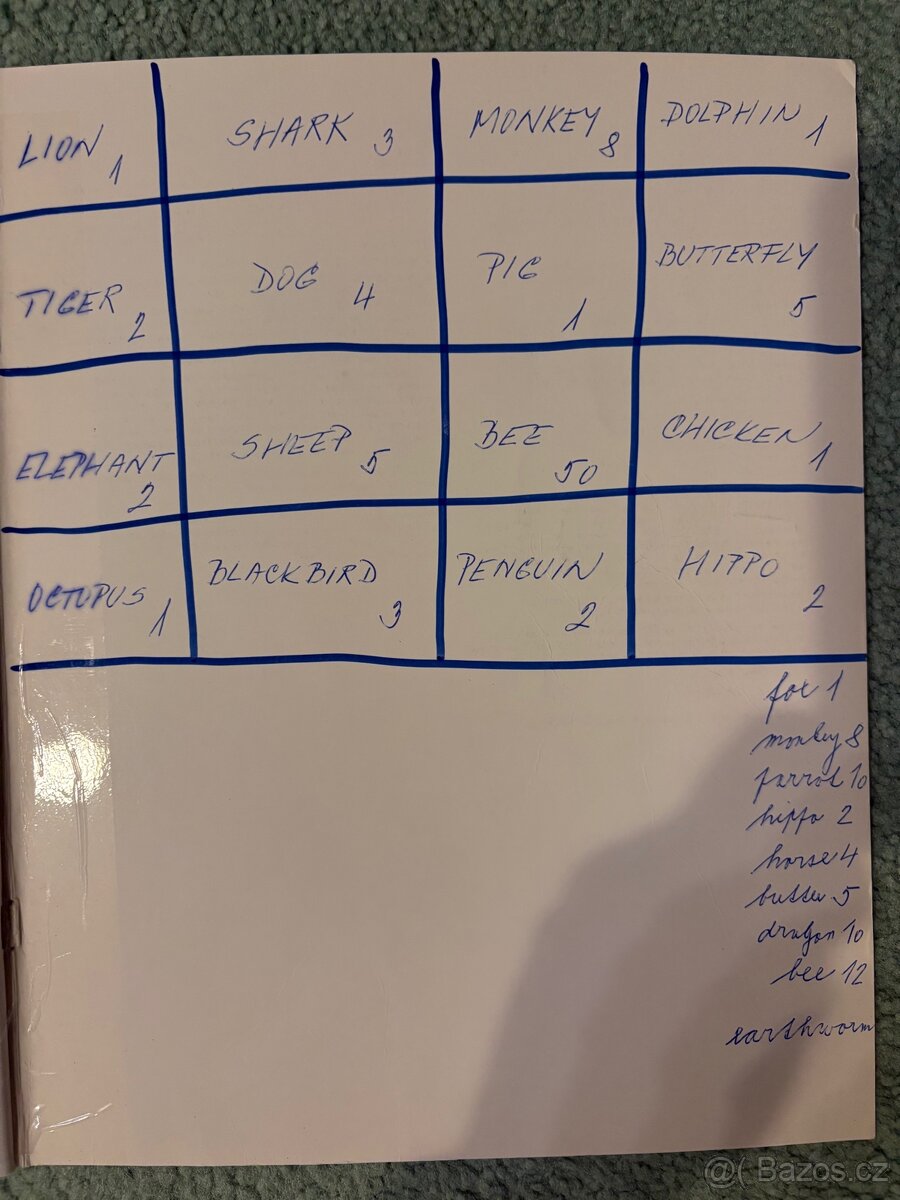 LION 1 SHARK 3 MONKEY 8 DOLPHIN 1
TIGER 2 DOG 4 PIG 1 BUTTERFLY 5
ELEPHANT 2 SHEEP 5 BEE 50 CHICKEN 1
OCTUPUS 1 BLACKBIRD 3 PENGUIN 2 HIPPO 2
fox 1
monkey 8
parrot 10
hippo 2
horse 4
butter 5
dragon 10
bee 12
earthworm
@( Bazoš.cz